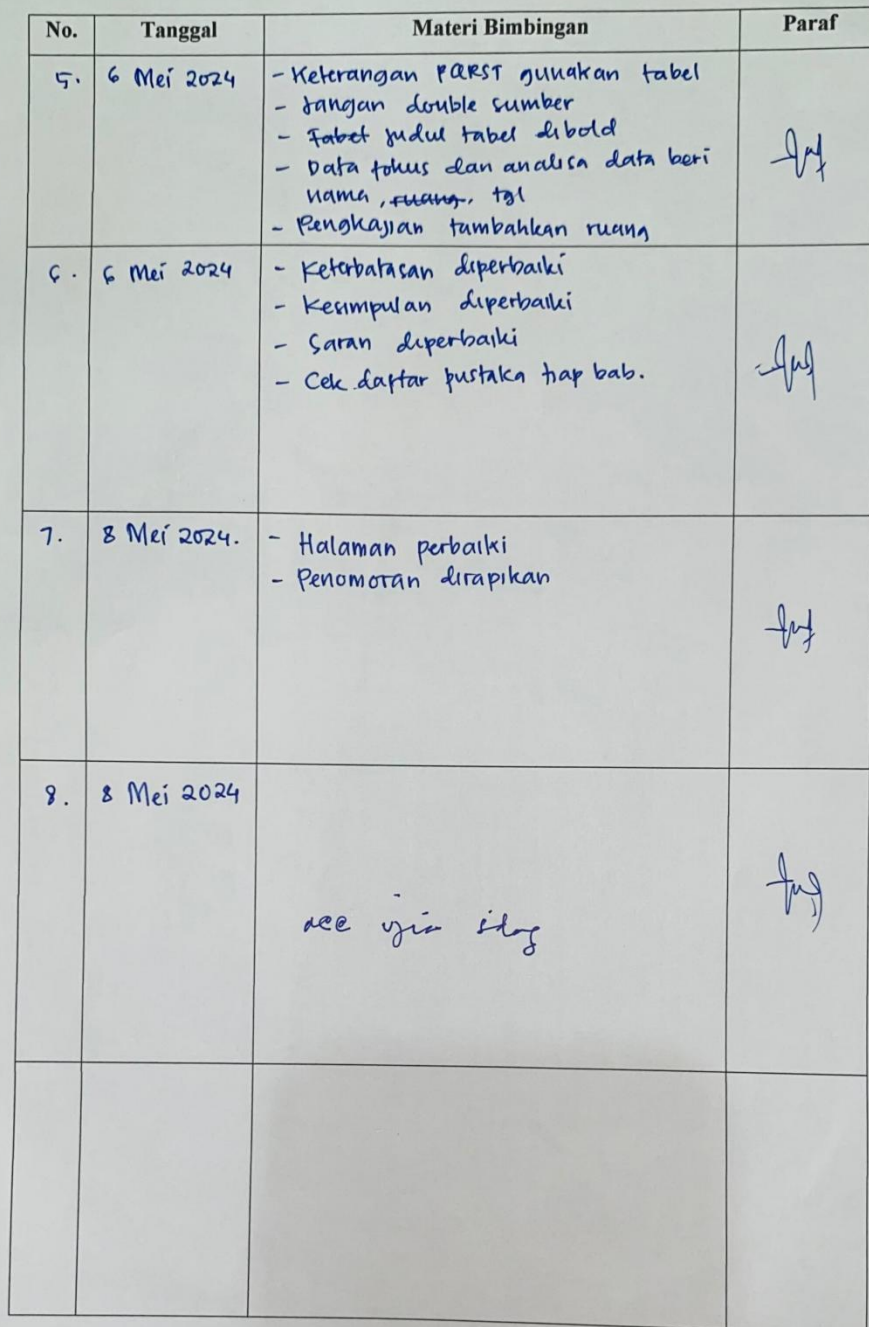 No. Tanggal Materi Bimbingan Paraf
5. 6 Mei 2024 - Keterangan PQRST gunakan tabel
- Jangan double sumber
- Tabel judul tabel dibold
- Data fokus dan analisa data beri
nama, ruang, tgl
- Pengkajian tambahkan ruang
6. 6 Mei 2024 - Keterbatasan diperbaiki
- Kesimpulan diperbaiki
- Saran diperbaiki
- Cek daftar pustaka tiap bab.
7. 8 Mei 2024. - Halaman perbaiki
- Penomoran dirapikan
8. 8 Mei 2024
acc